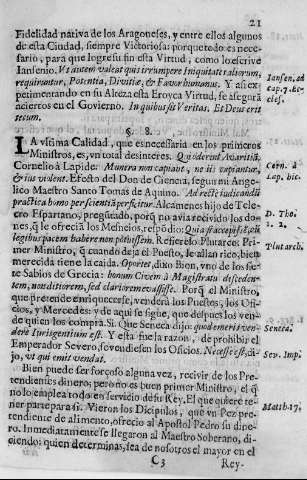 21
Fidelidad nativa de los Aragoneses, y entre ellos algunos
de esta Ciudad, siempre Victoriosa: porque todo es nece-
sario, para que logre su fin esta Virtud, como lo escrive
Jansenio. Vt autem valeat quis irrumpere Iniquitates aliorum,
requiruntur, Potentia, Divitiæ, & Favor humanus. Y assi ex-
perimentando en su Alteza esta Eroyca Virtud, se asegurà
aciertos en el Govierno. In quibus sit Veritas. Et Deus erit
tecum.
Jansen, ad
cap. 7. Ec-
cles.
§. 8.
LA vltima Calidad, que es necessaria en los primeros
Ministros, es, vn total desinteres. Qui oderunt Avaritiã,
Cornelio à Lapide: Munera non capiunt, ne iis vapiantur,
& ius violent. Efecto del Don de Ciencia, segun mi Ange-
lico Maestro Santo Tomàs de Aquino. Ad rectè iudicandũ
practica homo per scientiã perficitur. Alcamenes hijo de Tele-
cro Espartano, preguntado, porq̃ no avia recivido los do-
nes, q̃ le ofrecià los Mesenios, respõdio: Quia si accepissẽ, cũ
legibus pacem habere non potuissem. Refierelo Plutarco: Pri-
mer Ministro, q̃ cuando deja el Puesto, le allan rico, bien
merecida tiene la caida. Oportet, dixo Bion, vno de los sie-
te Sabios de Grecia: bonum Civem à Magistratu disceden-
tem, non ditiorem, sed clariorem evasisse. Porq̃ el Ministro,
que pretende enriquecerse, venderà los Puestos, los Ofi-
cios, y Mercedes: y de aqui se sigue, que despues los ven-
de quien los compra. Si. Que Seneca dijo: quod emeris ven-
dere Iurisgentium est. Y esta fue la razon, de prohibir el
Emperador Severo, se vendiesen los Oficios. Necesse est, di-
jo, vt qui emit vendat.
Corn. à
Lap. hic.
D. Tho.
2. 2.
Plutarch.
Seneca.
Sev. Imp.
Bien puede ser forçoso alguna vez, recivir de los Pre-
tendientes dinero; pero no es buen primer Ministro, el q̃
no lo emplea todo en servicio de su Rey. El que quiere te-
ner parte para si. Vieron los Dicipulos, que vn Pez pre-
tendiente de alimento, ofrecio al Apostol Pedro su dine-
ro. Inmediatamente se llegaron al Maestro Soberano, di-
ciendo: quien determinas, sea de nosotros el mayor en el
Matth. 17.
C3
Rey-